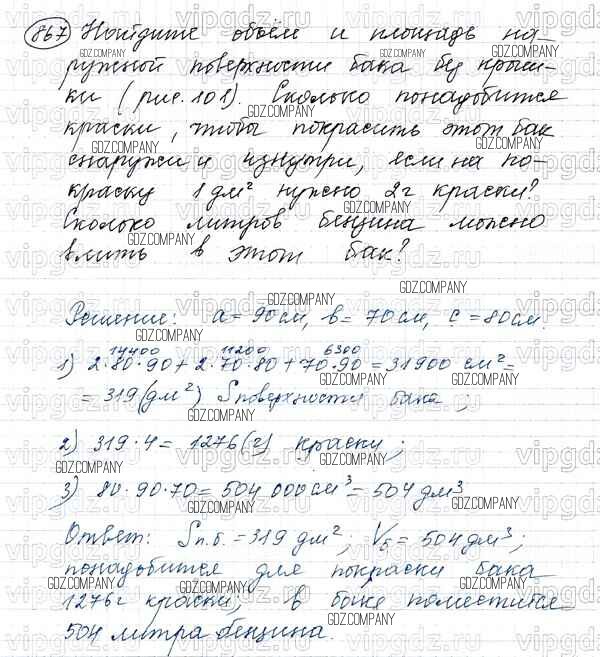 867 Найдите объём и площадь на-
ружной поверхности бака без крыш-
ки (рис. 101). Сколько понадобится
краски, чтобы покрасить этот бак
снаружи и изнутри, если на по-
краску 1 дм² нужно 2 г краски?
Сколько литров бензина можно
влить в этот бак?
Решение: a = 90 см, b = 70 см, c = 80 см.
14400 11200 6300
1) 2·80·90 + 2·70·80 + 70·90 = 31900 см² =
= 319 (дм²) S поверхности бака;
2) 319·4 = 1276 (г) краски;
3) 80·90·70 = 504 000 см³ = 504 дм³
Ответ: Sп.б. = 319 дм²; Vб = 504 дм³;
понадобится для покраски бака
1276 г краски, в баке поместится
504 литра бензина.
GDZ.COMPANY
vipgdz.ru